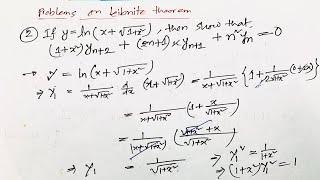 Problems on Leibnitz theorem
② If y = ln(x + √1+x²), then show that
(1+x²)yₙ₊₂ + (2n+1)xyₙ₊₁ + n²yₙ = 0
→ y = ln(x + √1+x²)
⇒ y₁ = 1/(x+√1+x²) d/dx (x+√1+x²) = 1/(x+√1+x²) {1 + 1/(2√1+x²) (0+2x)}
= 1/(x+√1+x²) (1 + x/√1+x²)
= 1/(x+√1+x²) (√1+x² + x)/(√1+x²)
⇒ y₁ = 1/√1+x² ⇒ y₁² = 1/(1+x²)
⇒ (1+x²)y₁² = 1